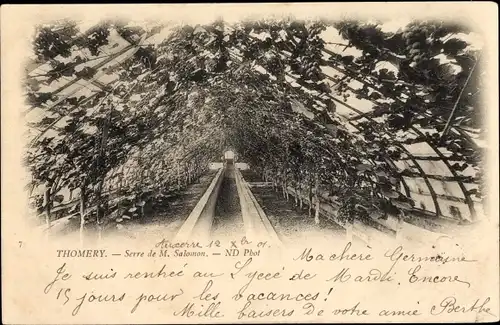 7
THOMERY. — Serre de M. Salomon. — ND Phot
Auxerre 12 Xbre 01.
Ma chère Germaine
Je suis rentrée au Lycée de Mardi. Encore
15 jours pour les vacances!
Mille baisers de votre amie Berthe